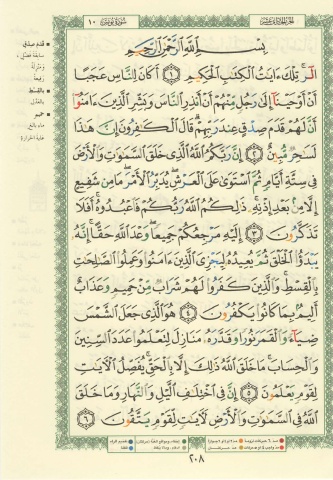 الجزء الحادي عشر
سورة يونس
١٠
بِسْمِ ٱللَّهِ ٱلرَّحْمَٰنِ ٱلرَّحِيمِ
الٓر ۚ تِلْكَ ءَايَٰتُ ٱلْكِتَٰبِ ٱلْحَكِيمِ ١ أَكَانَ لِلنَّاسِ عَجَبًا
أَنْ أَوْحَيْنَآ إِلَىٰ رَجُلٍ مِّنْهُمْ أَنْ أَنذِرِ ٱلنَّاسَ وَبَشِّرِ ٱلَّذِينَ ءَامَنُوٓا۟
أَنَّ لَهُمْ قَدَمَ صِدْقٍ عِندَ رَبِّهِمْ ۗ قَالَ ٱلْكَٰفِرُونَ إِنَّ هَٰذَا
لَسَٰحِرٌ مُّبِينٌ ٢ إِنَّ رَبَّكُمُ ٱللَّهُ ٱلَّذِى خَلَقَ ٱلسَّمَٰوَٰتِ وَٱلْأَرْضَ
فِى سِتَّةِ أَيَّامٍ ثُمَّ ٱسْتَوَىٰ عَلَى ٱلْعَرْشِ ۖ يُدَبِّرُ ٱلْأَمْرَ ۖ مَا مِن شَفِيعٍ
إِلَّا مِنۢ بَعْدِ إِذْنِهِۦ ۚ ذَٰلِكُمُ ٱللَّهُ رَبُّكُمْ فَٱعْبُدُوهُ ۚ أَفَلَا
تَذَكَّرُونَ ٣ إِلَيْهِ مَرْجِعُكُمْ جَمِيعًا ۖ وَعْدَ ٱللَّهِ حَقًّا ۚ إِنَّهُۥ
يَبْدَؤُا۟ ٱلْخَلْقَ ثُمَّ يُعِيدُهُۥ لِيَجْزِىَ ٱلَّذِينَ ءَامَنُوا۟ وَعَمِلُوا۟ ٱلصَّٰلِحَٰتِ
بِٱلْقِسْطِ ۚ وَٱلَّذِينَ كَفَرُوا۟ لَهُمْ شَرَابٌ مِّنْ حَمِيمٍ وَعَذَابٌ
أَلِيمٌۢ بِمَا كَانُوا۟ يَكْفُرُونَ ٤ هُوَ ٱلَّذِى جَعَلَ ٱلشَّمْسَ
ضِيَآءً وَٱلْقَمَرَ نُورًا وَقَدَّرَهُۥ مَنَازِلَ لِتَعْلَمُوا۟ عَدَدَ ٱلسِّنِينَ
وَٱلْحِسَابَ ۚ مَا خَلَقَ ٱللَّهُ ذَٰلِكَ إِلَّا بِٱلْحَقِّ ۚ يُفَصِّلُ ٱلْءَايَٰتِ
لِقَوْمٍ يَعْلَمُونَ ٥ إِنَّ فِى ٱخْتِلَٰفِ ٱلَّيْلِ وَٱلنَّهَارِ وَمَا خَلَقَ
ٱللَّهُ فِى ٱلسَّمَٰوَٰتِ وَٱلْأَرْضِ لَءَايَٰتٍ لِّقَوْمٍ يَتَّقُونَ ٦
٢٠٨
قدم صدق
سابقة فضل
ومنزلة
رفيعة
بالقسط
بالعدل
حميم
ماء بالغ
غاية الحرارة